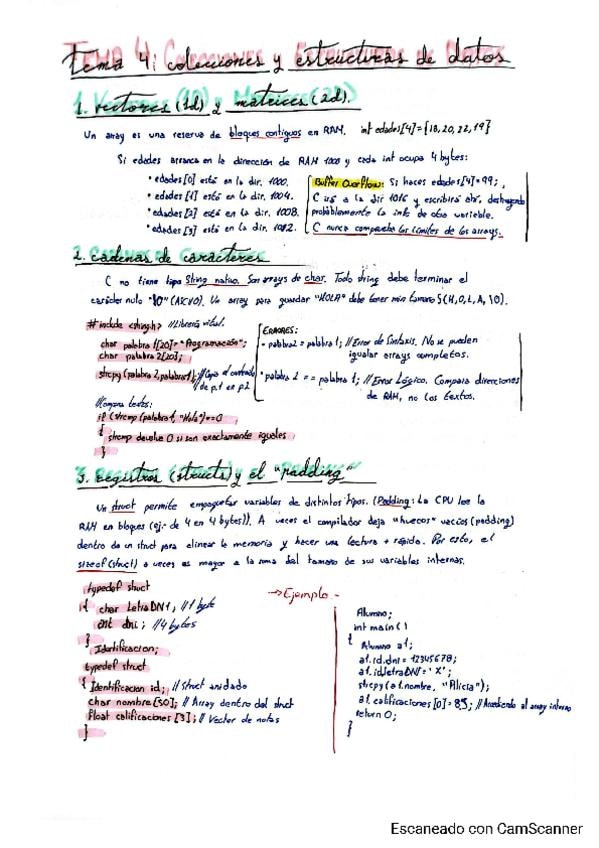 Tema 4: colecciones y estructuras de datos
1. vectores (1d) y matrices (2d).
Un array es una reserva de bloques contiguos en RAM. int edades[4]={18,20,22,19}
Si edades arranca en la dirección de RAM 1000 y cada int ocupa 4 bytes:
• edades[0] está en la dir. 1000.
• edades[1] está en la dir. 1004.
• edades[2] está en la dir. 1008.
• edades[3] está en la dir. 1012.
Buffer Overflow: Si haces edades[4]=99; ,
C irá a la dir 1016 y escribirá ahí, destruyendo
probablemente la info de otra variable.
C nunca comprueba los límites de los arrays.
2. cadenas de caracteres
C no tiene tipo String nativo. Son arrays de char. Todo string debe terminar el
carácter nulo "\0" (ASCII 0). Un array para guardar "HOLA" debe tener min tamaño 5 (H,O,L,A,\0).
#include <string.h> //Librería vital.
char palabra1[20]="Programación";
char palabra2[20];
strcpy(palabra2,palabra1); //Copia el contenido
de p.1 en p.2
//Compara textos:
if (strcmp(palabra1, "Hola")==0
{
strcmp devuelve 0 si son exactamente iguales
}
ERRORES:
• palabra2 = palabra1; //Error de Sintaxis. No se pueden
igualar arrays completos.
• palabra 2 == palabra 1; //Error Lógico. Compara direcciones
de RAM, no los textos.
3. Registros (structs) y el "padding"
Un struct permite empaquetar variables de distintos tipos. (Padding: La CPU lee la
RAM en bloques (ej: de 4 en 4 bytes)). A veces el compilador deja "huecos" vacíos (padding)
dentro de un struct para alinear la memoria y hacer una lectura + rápida. Por esto, el
sizeof(struct) a veces es mayor a la suma del tamaño de sus variables internas.
typedef struct
{ char LetraDNI; //1 byte
int dni; //4 bytes
}
Identificacion;
typedef struct
{ Identificacion id; // Struct anidado
char nombre[50]; // Array dentro del struct
float calificaciones[3]; // Vector de notas
}
→ Ejemplo -
Alumno;
int main()
{ Alumno a1;
a1.id.dni = 12345678;
a1.id.letraDNI = 'X';
strcpy(a1.nombre, "Alicia");
a1.calificaciones[0] = 8,5; //Accediendo al array interno
return 0;
}
Escaneado con CamScanner